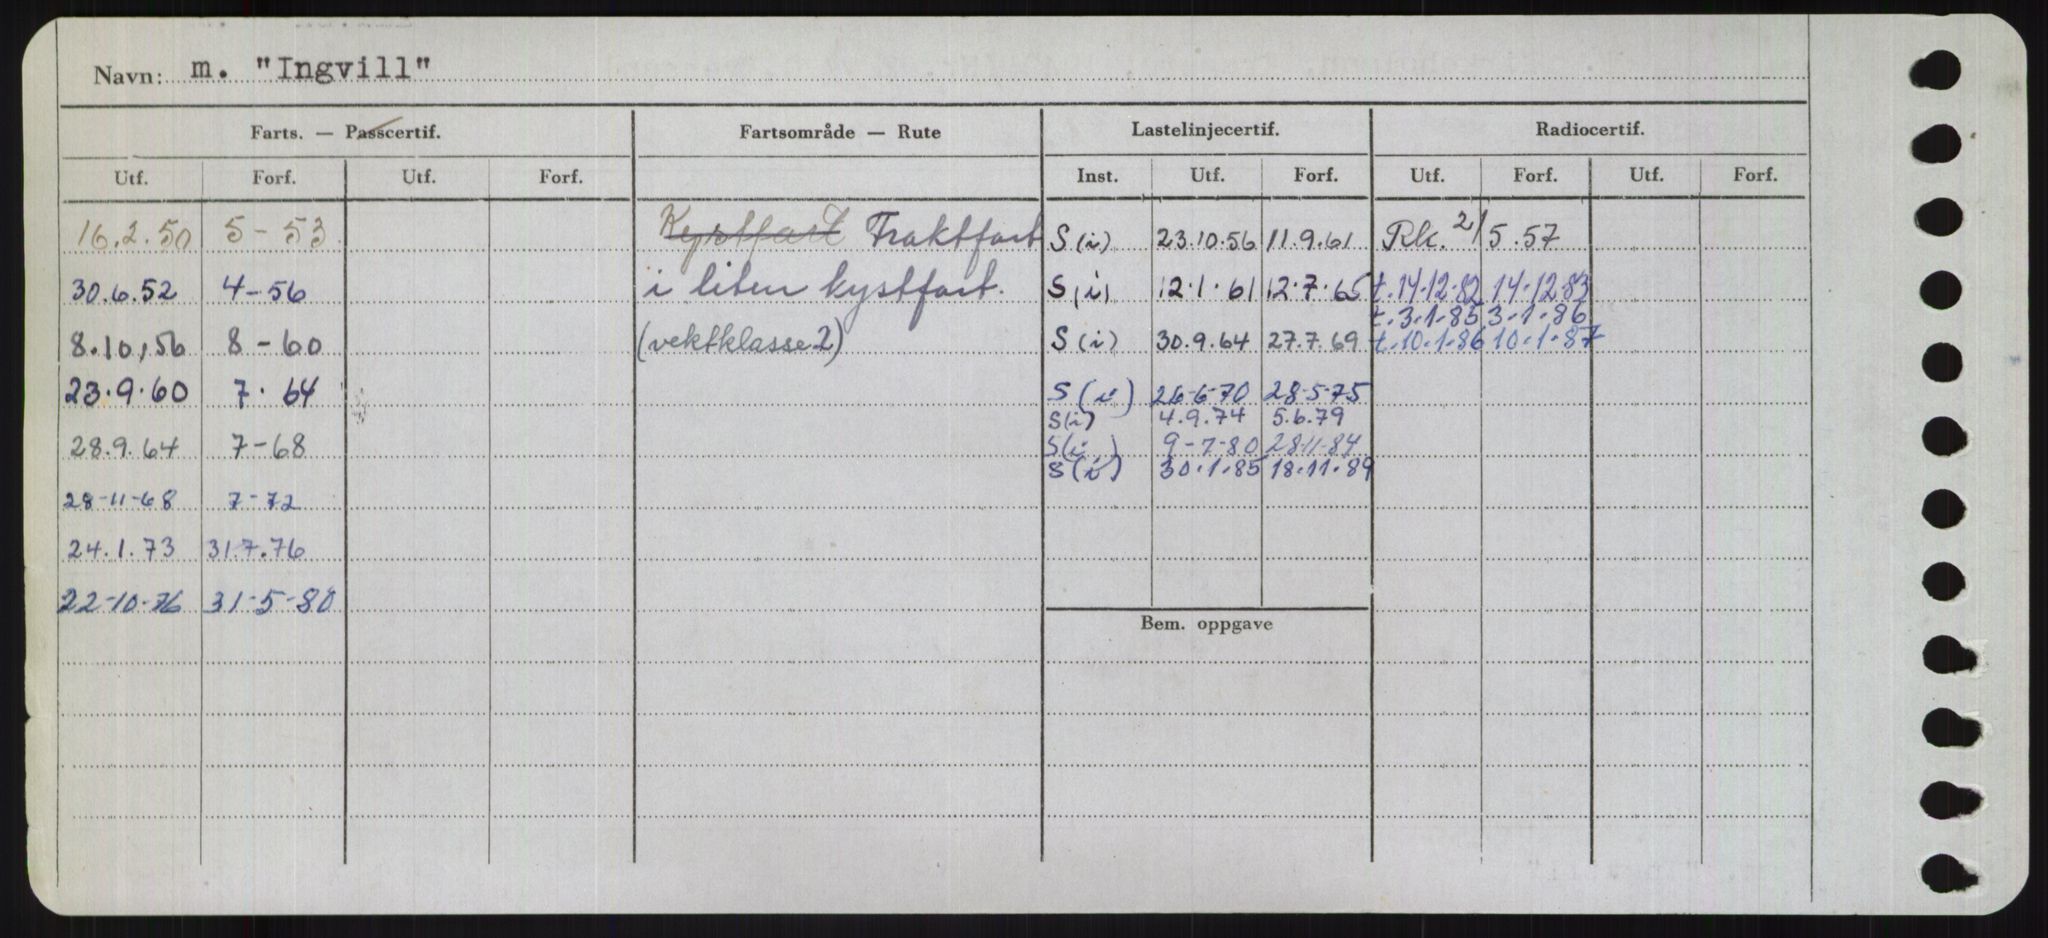 Navn: m. "Ingvill"
Farts. — Passcertif. Fartsområde — Rute Lastelinjecertif. Radiocertif.
Utf. Forf. Utf. Forf. Inst. Utf. Forf. Utf. Forf. Utf. Forf.
16.2.50 5-53 Kystfart Fraktfart S (i) 23.10.56 11.9.61 Rk. 2/5.57
30.6.52 4-56 i liten kystfart. S (i) 12.1.61 12.7.65 t.14.12.82 14.12.83
t.3.1.85 3.1.86
8.10,56 8-60 (vektklasse 2) S (i) 30.9.64 27.7.69 t.10.1.86 10.1.87
23.9.60 7.64 S (i) 26-6-70 28-5-75
S(i) 4.9.74 5.6.79
28.9.64 7-68 S(i) 9-7-80 28-11-84
S (i) 30.1.85 18.11.89
28-11-68 7-72
24.1.73 31.7.76
22-10-76 31-5-80
Bem. oppgave